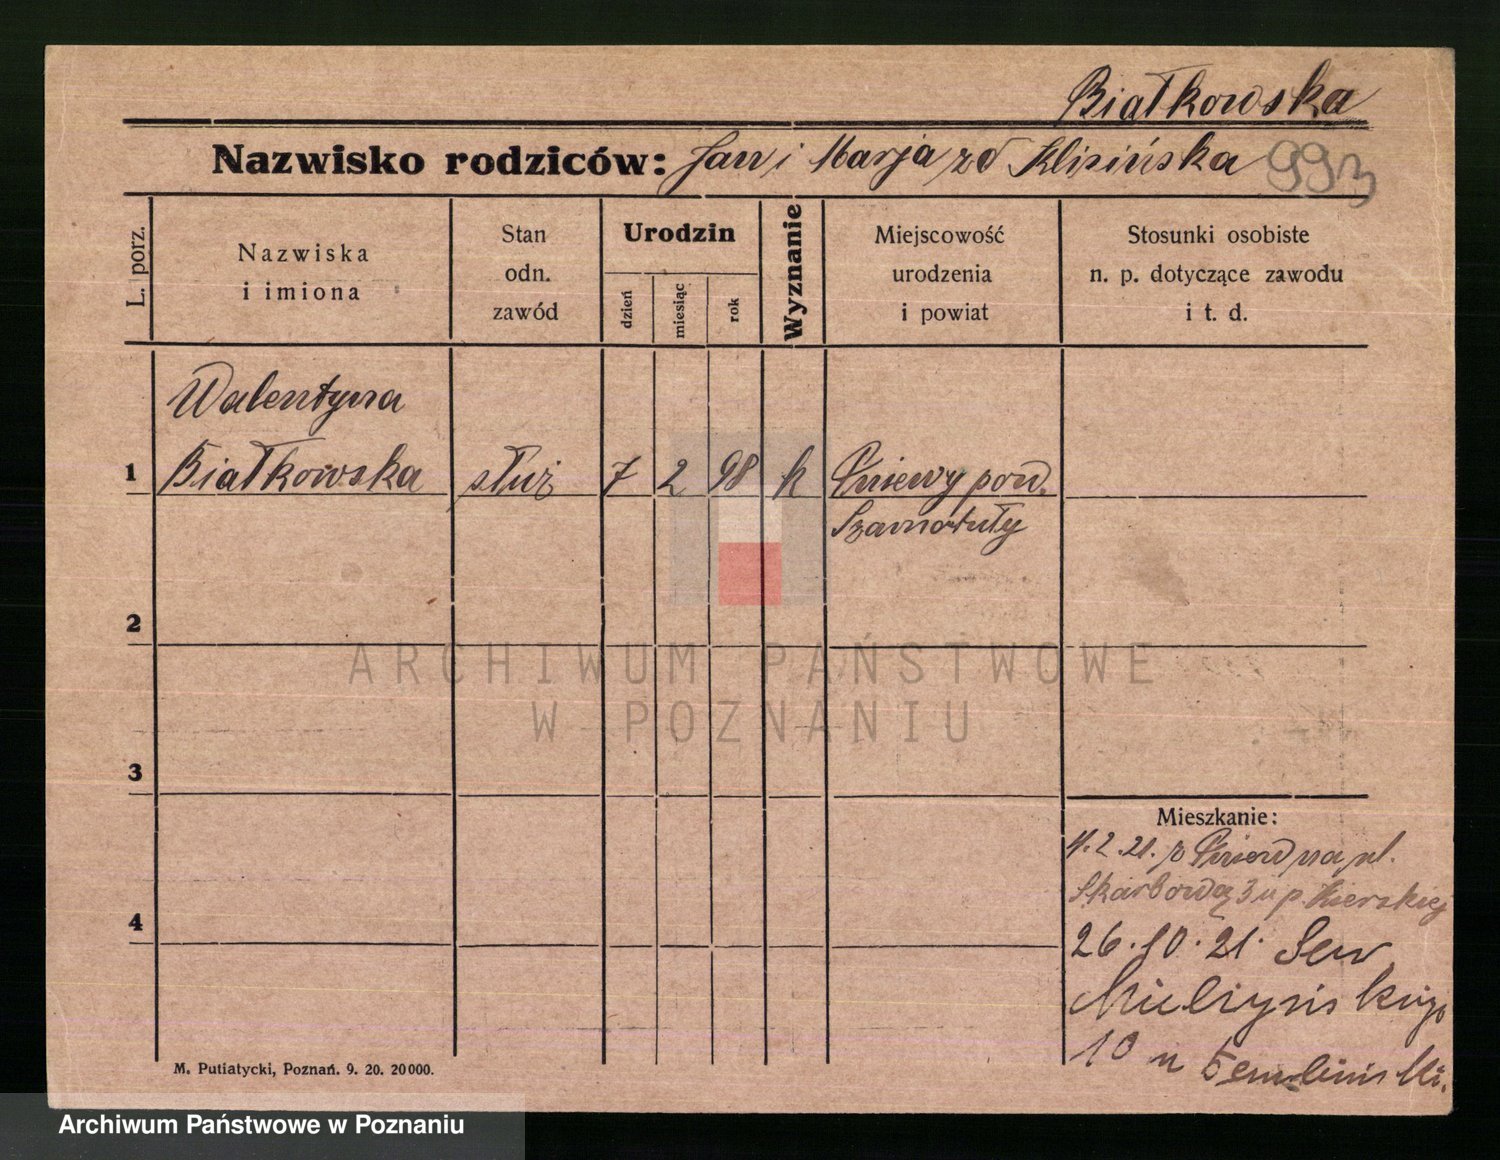 Białkowska
Nazwisko rodziców: Jan i Marja zd Klisińska 993
L. porz.
Nazwiska
i imiona
Stan
odn.
zawód
Urodzin
dzień
miesiąc
rok
Wyznanie
Miejscowość
urodzenia
i powiat
Stosunki osobiste
n. p. dotyczące zawodu
i t. d.
Walentyna
1 Białkowska służ 7 2 98 k Pniewy pow.
Szamotuły
2
ARCHIWUM PAŃSTWOWE
W POZNANIU
3
Mieszkanie:
2.21. z Pniew na ul.
Skarbową 3 u p.
4
26.10.21. Sew
Mielżyńskiego
10 u
M. Putiatycki, Poznań. 9. 20. 20000.
Archiwum Państwowe w Poznaniu